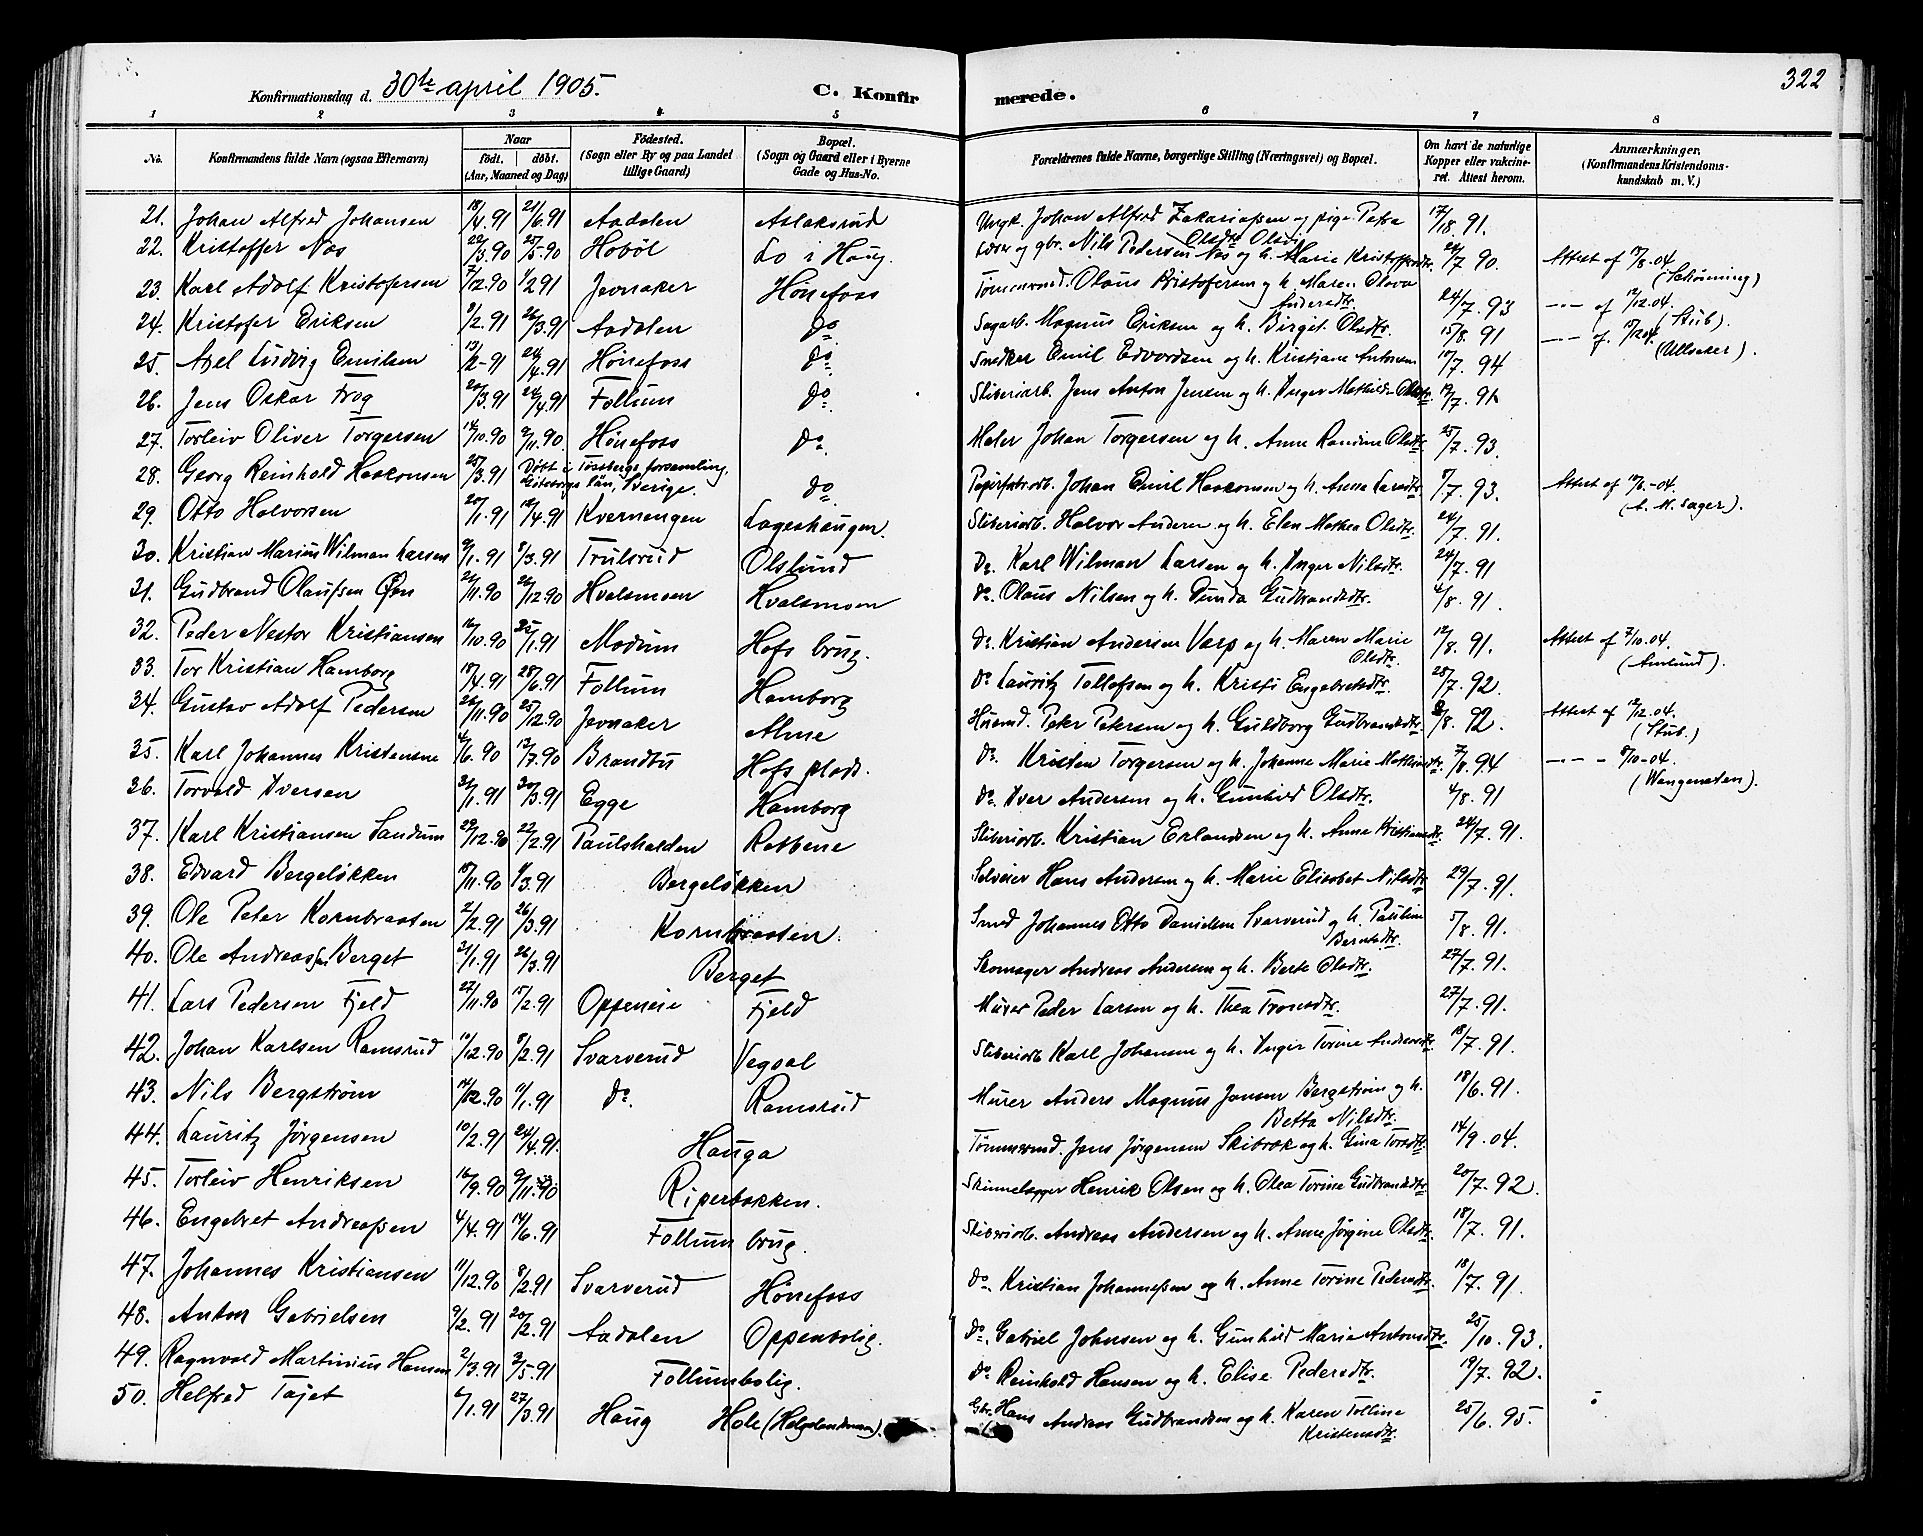 322
Konfirmationsdag d. 30te april 1905.
C. Konfir merede.
1 2 3 4 5 6 7 8
No. Konfirmandens fulde Navn (ogsaa Efternavn) Naar født. døbt. (Aar, Maaned og Dag) Fødested. (Sogn eller By og paa Landet tillige Gaard) Bopæl. (Sogn og Gaard eller i Byerne Gade og Hus-No. Forældrenes fulde Navne, borgerlige Stilling (Næringsvei) og Bopæl. Om havt de naturlige Kopper eller vakcineret. Attest herom. Anmærkninger, (Konfirmandens Kristendomskundskab m. V.)
21. Johan Alfred Johansen 18/4.91 21/6.91 Aadalen Aslaksrud Ungk. Johan Alfred Zakariassen og pige Petra Olsdtr. 17/18.91.
22. Kristoffer Næs 22/3.90 25/5-90 Hobøl Lo i Haug. Nils Pedersen Næs og h. Marie Kristoffersdtr. 24/7 90. Attest af 17/8.04
23. Karl Adolf Kristofersen 7/12.90 1/2 91 Jevnaker Hønefoss Tømmermd. Olaus Kristofersen og h. Maren Olava Andersdtr. 24/7.93 -"- af 12/12.04. (Stub).
24. Kristofer Eriksen 9/2.91 26/3.91 Aadalen do Sagarb. Magnus Eriksen og h. Birgit Olsdtr. 15/8.91 -"- af (Ullseker).
25. Axel Ludvig Emilsen 13/2-91 24/4.91 Hønefoss do. Snedker Emil Edvardsen og h. Kristiane Antonsen 10/7.94
26. Jens Oskar Frog 20/3.91 26/4.91 Follum do. Sliberiarb. Jens Anton Jensen og h. Inger Mathilde Olsdtr. 19/7.91
27. Torleiv Oliver Torgersen 14/10.90 9/11.90. Hønefoss do. Maler Johan Torgersen og h. Anne Randine Olsdtr. 25/7.93.
28. Georg Reinhold Haakonsen 25/3.91 Døbt i Tossbergs forsamling, Göteborgs län, Sverige. do Papirfabrarb. Johan Emil Haakonsen og h. Anna Larsdtr. 7/7.93. Attest af 10/6.-04. (A. M. Sager).
29. Otto Halvorsen 20/1.91 12/4.91 Kvernengen Lageshaugen. Sliberiarb. Halvor Andersen og h. Elen Mathea Olsdtr. 24/7.91.
30. Kristian Marius Wilman Larsen 9/1.91 8/3.91 Trulsrud Olslund Do. Karl Wilman Larsen og h. Inger Nilsdtr. 24/7.91
31. Gudbrand Olaussen Øen 21/11.90 26/12.90 Hvalsmoen Hvalsmoen do. Olaus Nilsen og h. Gudbrandsdtr. 4/8.91.
32. Peder Nestor Kristiansen 16/10.90 25/1.91 Modum Hofs brug. do. Kristian Andersen Varp og h. Maren Marie Olsdtr. 12/8.91. Attest af 7/10.04. (Amlund).
33. Tor Kristian Hamborg 18/4.91 28/6.91 Follum Hamborg do Lauritz Tollefsen og h. Kristi Engebretsdtr. 28/7.92.
34. Gustav Adolf Pedersen 26/11.90 25/12.90 Jevnaker Alme Husmd. Peter Petersen og h. Guldborg Gudbrandsdtr. 2/8.92. Attest af 12/12.04. (Stub.)
35. Karl Johannes Kristensen 4/6.90 13/7.90 Brandbu Hofs plads. do. Kristen Torgersen og h. Johanne Marie 7/8.94 -"- - 8/10-04.
36. Torvald Iversen 31/1.91 30/3.91 Egge Hamborg do. Iver Andersen og h. Gunhild Olsdtr. 4/8.91
37. Karl Kristiansen Sandum 29/12.90 22/2.91 Paulshalden Ratbene Sliberiarb. Kristian Erlandsen og h. Anna Kristiansdtr. 24/7.91.
38. Edvard Bergeløkken 18/11.90 1/3.91 Bergeløkken Selveier Hans Andersen og h. Marie Elisabet Nilsdtr. 29/7.91.
39. Ole Peter Kornbraaten 21/2.91 26/3.91 Kornbraaten. Smed Johannes Otto Danielsen Svarverud og h. Pauline Berntsdtr. 5/8.91.
40. Ole Andreassen Berget 31/1.91 26/3.91 Berget Skomager Andreas Andersen og h. Berte Olsdtr. 27/7.91.
41. Lars Pedersen Fjeld 27/11.90 15/2.91 Oppeneie Fjeld Murer Peder Larsen og h. Thea Tronsdtr. 27/7.91.
42. Johan Karlsen Ramsrud 10/12.90 8/2.91 Svarverud Vegsal Sliberiarb Karl Johansen og h. Inger Torine Andersdtr. 18/7.91.
43. Nils Bergstrøm 14/12.90 11/1.91 do. Ramsrud Murer Anders Magnus Jansen Bergstrøm og h. Betta Nilsdtr. 18/6.91.
44. Lauritz Jørgensen 10/2.91 24/4.91. Hauga Tømmermd. Jens Jørgensen Skibrek og h. Gina Torsdtr. 14/9.04.
45. Torleiv Henriksen 16/9.90 9/11.90 Riperbakken. Skinnelægger Henrik Olsen og h. Olea Torine Gudbrandsdtr. 20/7.92.
46. Engebret Andreassen 4/4.91 14/6.91 Follum brug. Sliberiarb. Andreas Andersen og h. Anne Jørgine Olsdtr. 18/7.91.
47. Johannes Kristiansen 11/12.90 8/2.91 Svarverud Hønefoss do. Kristian Johannessen og h. Anne Torine Pedersdtr. 18/7.91.
48. Anton Gabrielsen 9/2.91 20/2.91 Aadalen Oppenbolig. do. Gabriel Johnsen og h. Gunhild Maria Antonsdtr. 25/10.93.
49. Ragnvald Martinius Hansen 2/3.91 3/5.91 Follumbolig. do Reinhold Hansen og h. Elise Pedersdtr. 19/7.92.
50. Helfred Tajet 6/1.91 27/3.91 Haug Hole (Helgelandsmoen). Gbr. Hans Andreas Gudbrandsen og h. Karen Tolline Kristensdtr. 25/6.95.